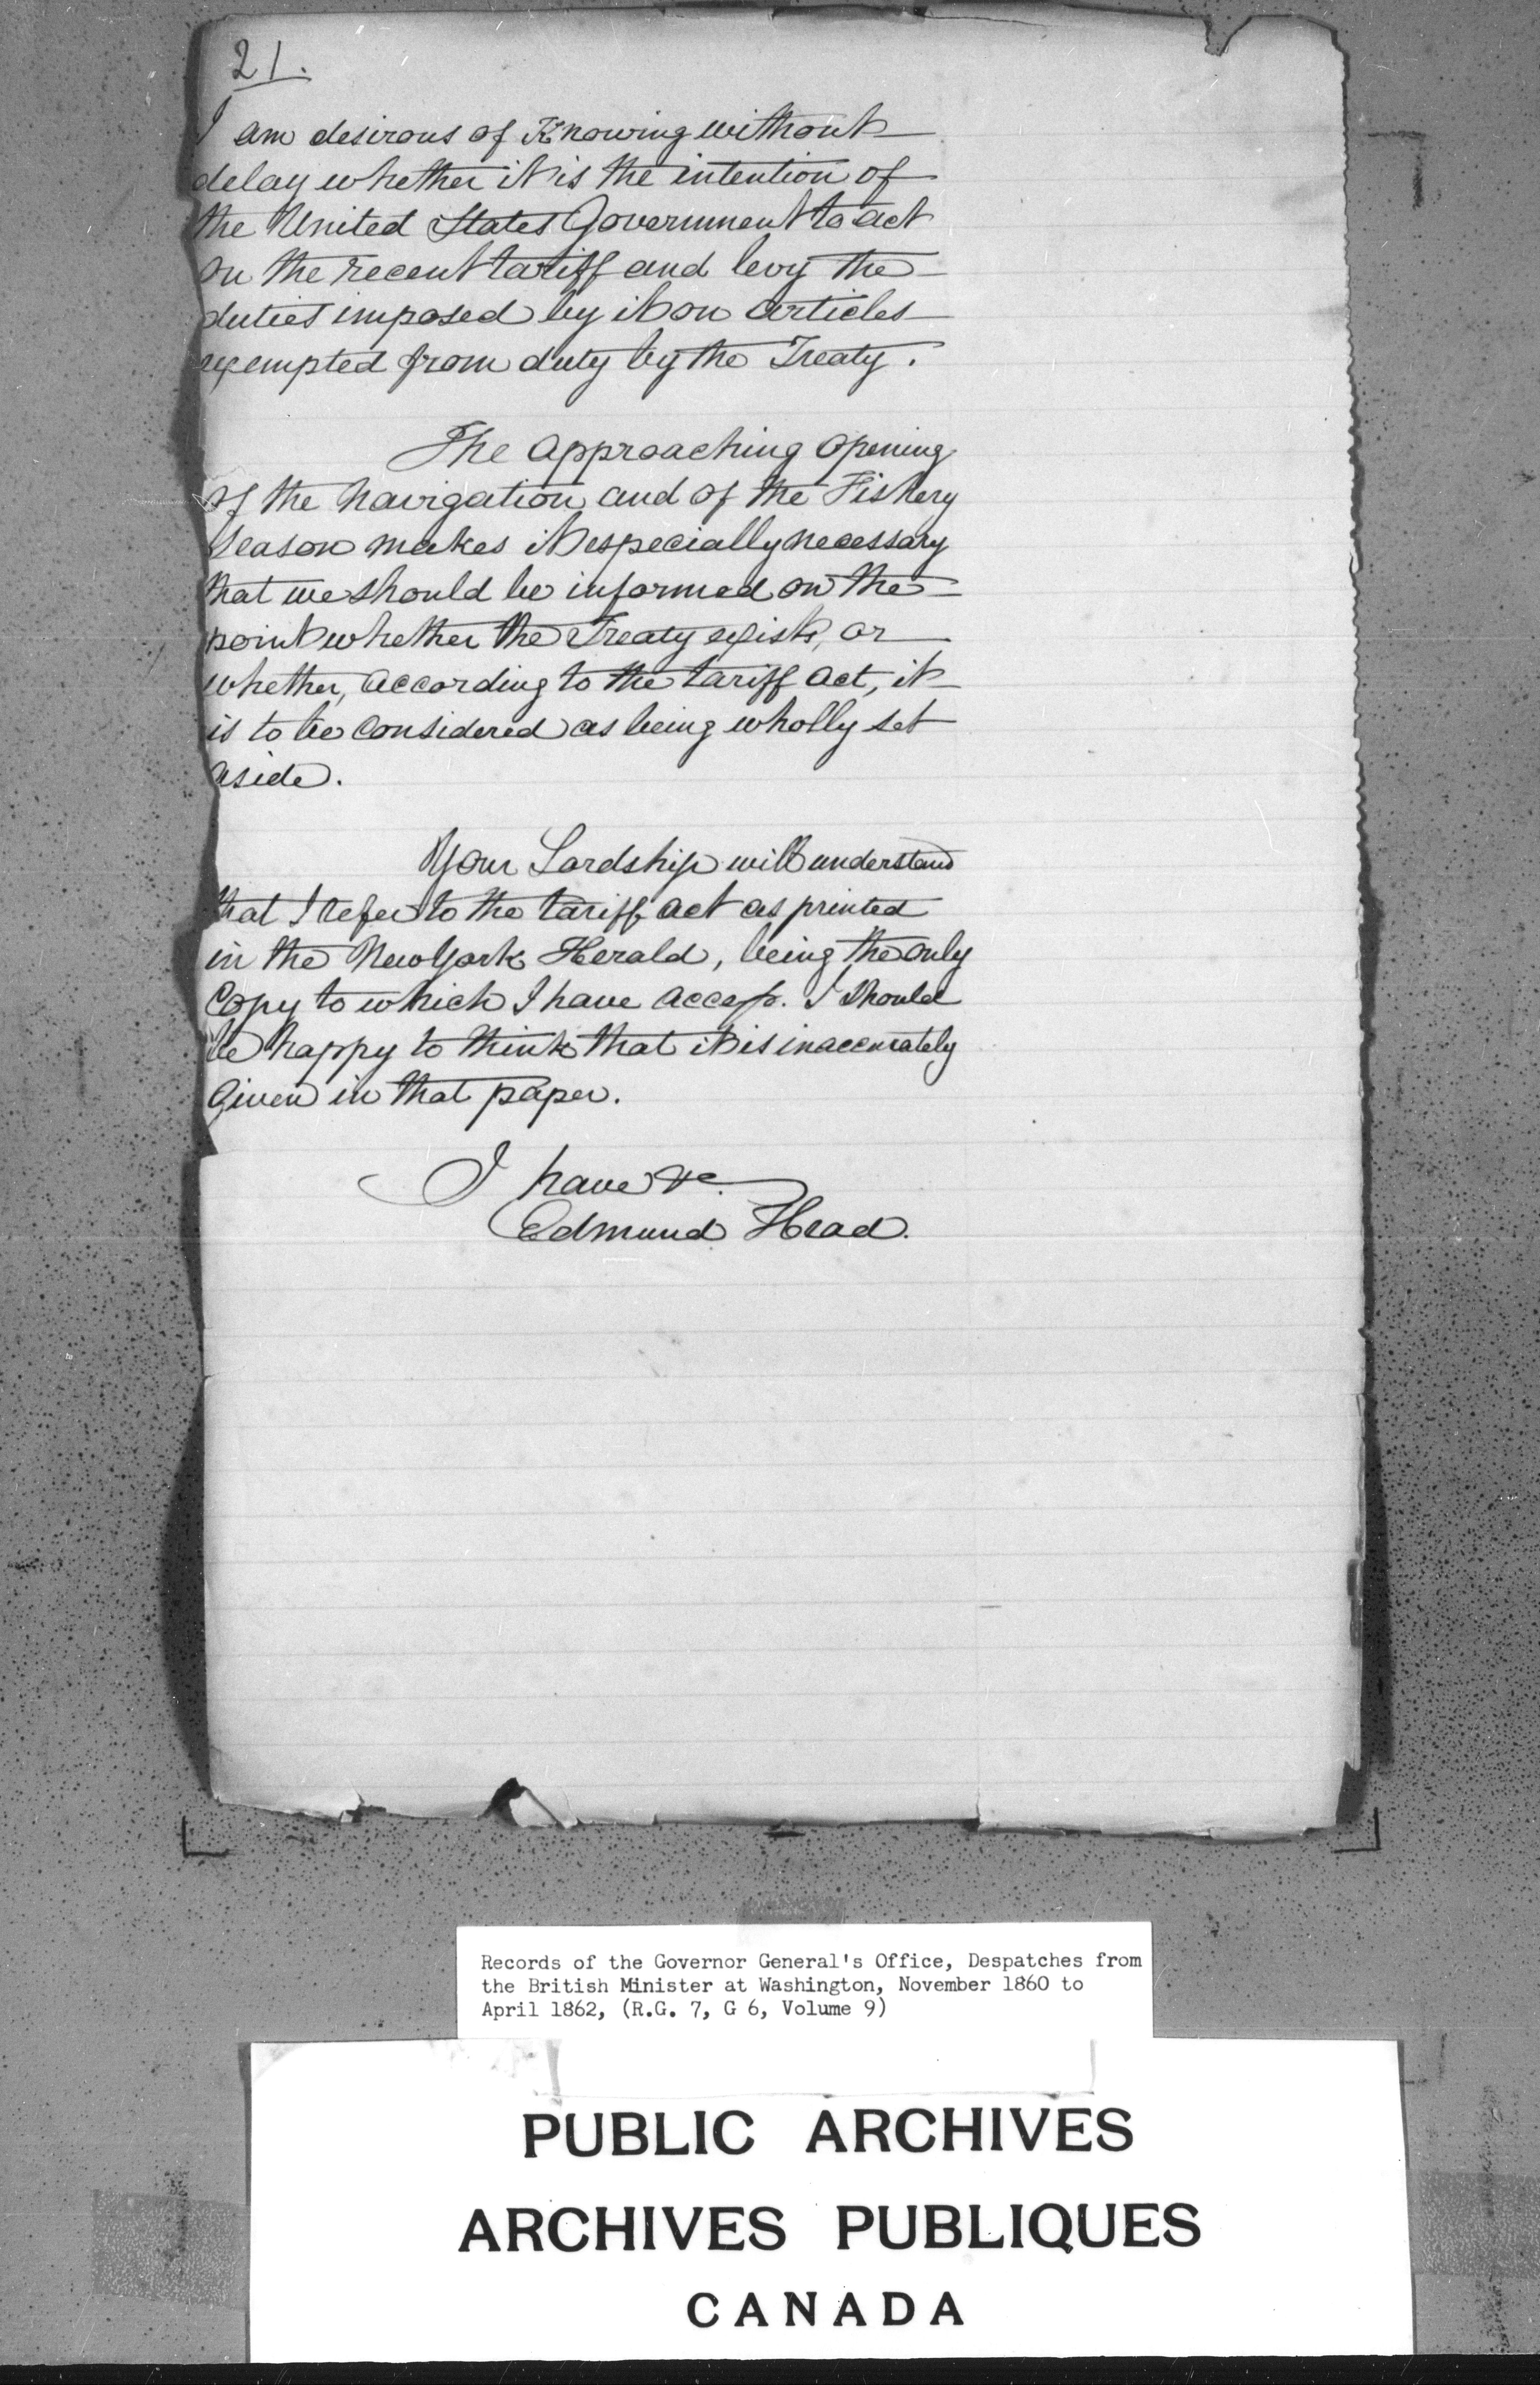 21.
I am desirous of Knowing without
delay whether it is the intention of
the United States Government to act
on the recent tariff and levy the
duties imposed by it on articles
exempted from duty by the Treaty.
The approaching opening
of the Navigation and of the Fishery
Season makes it especially necessary
that we should be informed on the
point whether the Treaty exists, or
whether, according to the tariff act, it
is to be considered as being wholly set
aside.
Your Lordship will understand
that I refer to the tariff act as printed
in the New York Herald, being the only
Copy to which I have access. I should
be happy to think that it is inaccurately
given in that paper.
I have &c.
Edmund Head.
Records of the Governor General's Office, Despatches from
the British Minister at Washington, November 1860 to
April 1862, (R.G. 7, G 6, Volume 9)
PUBLIC ARCHIVES
ARCHIVES PUBLIQUES
CANADA